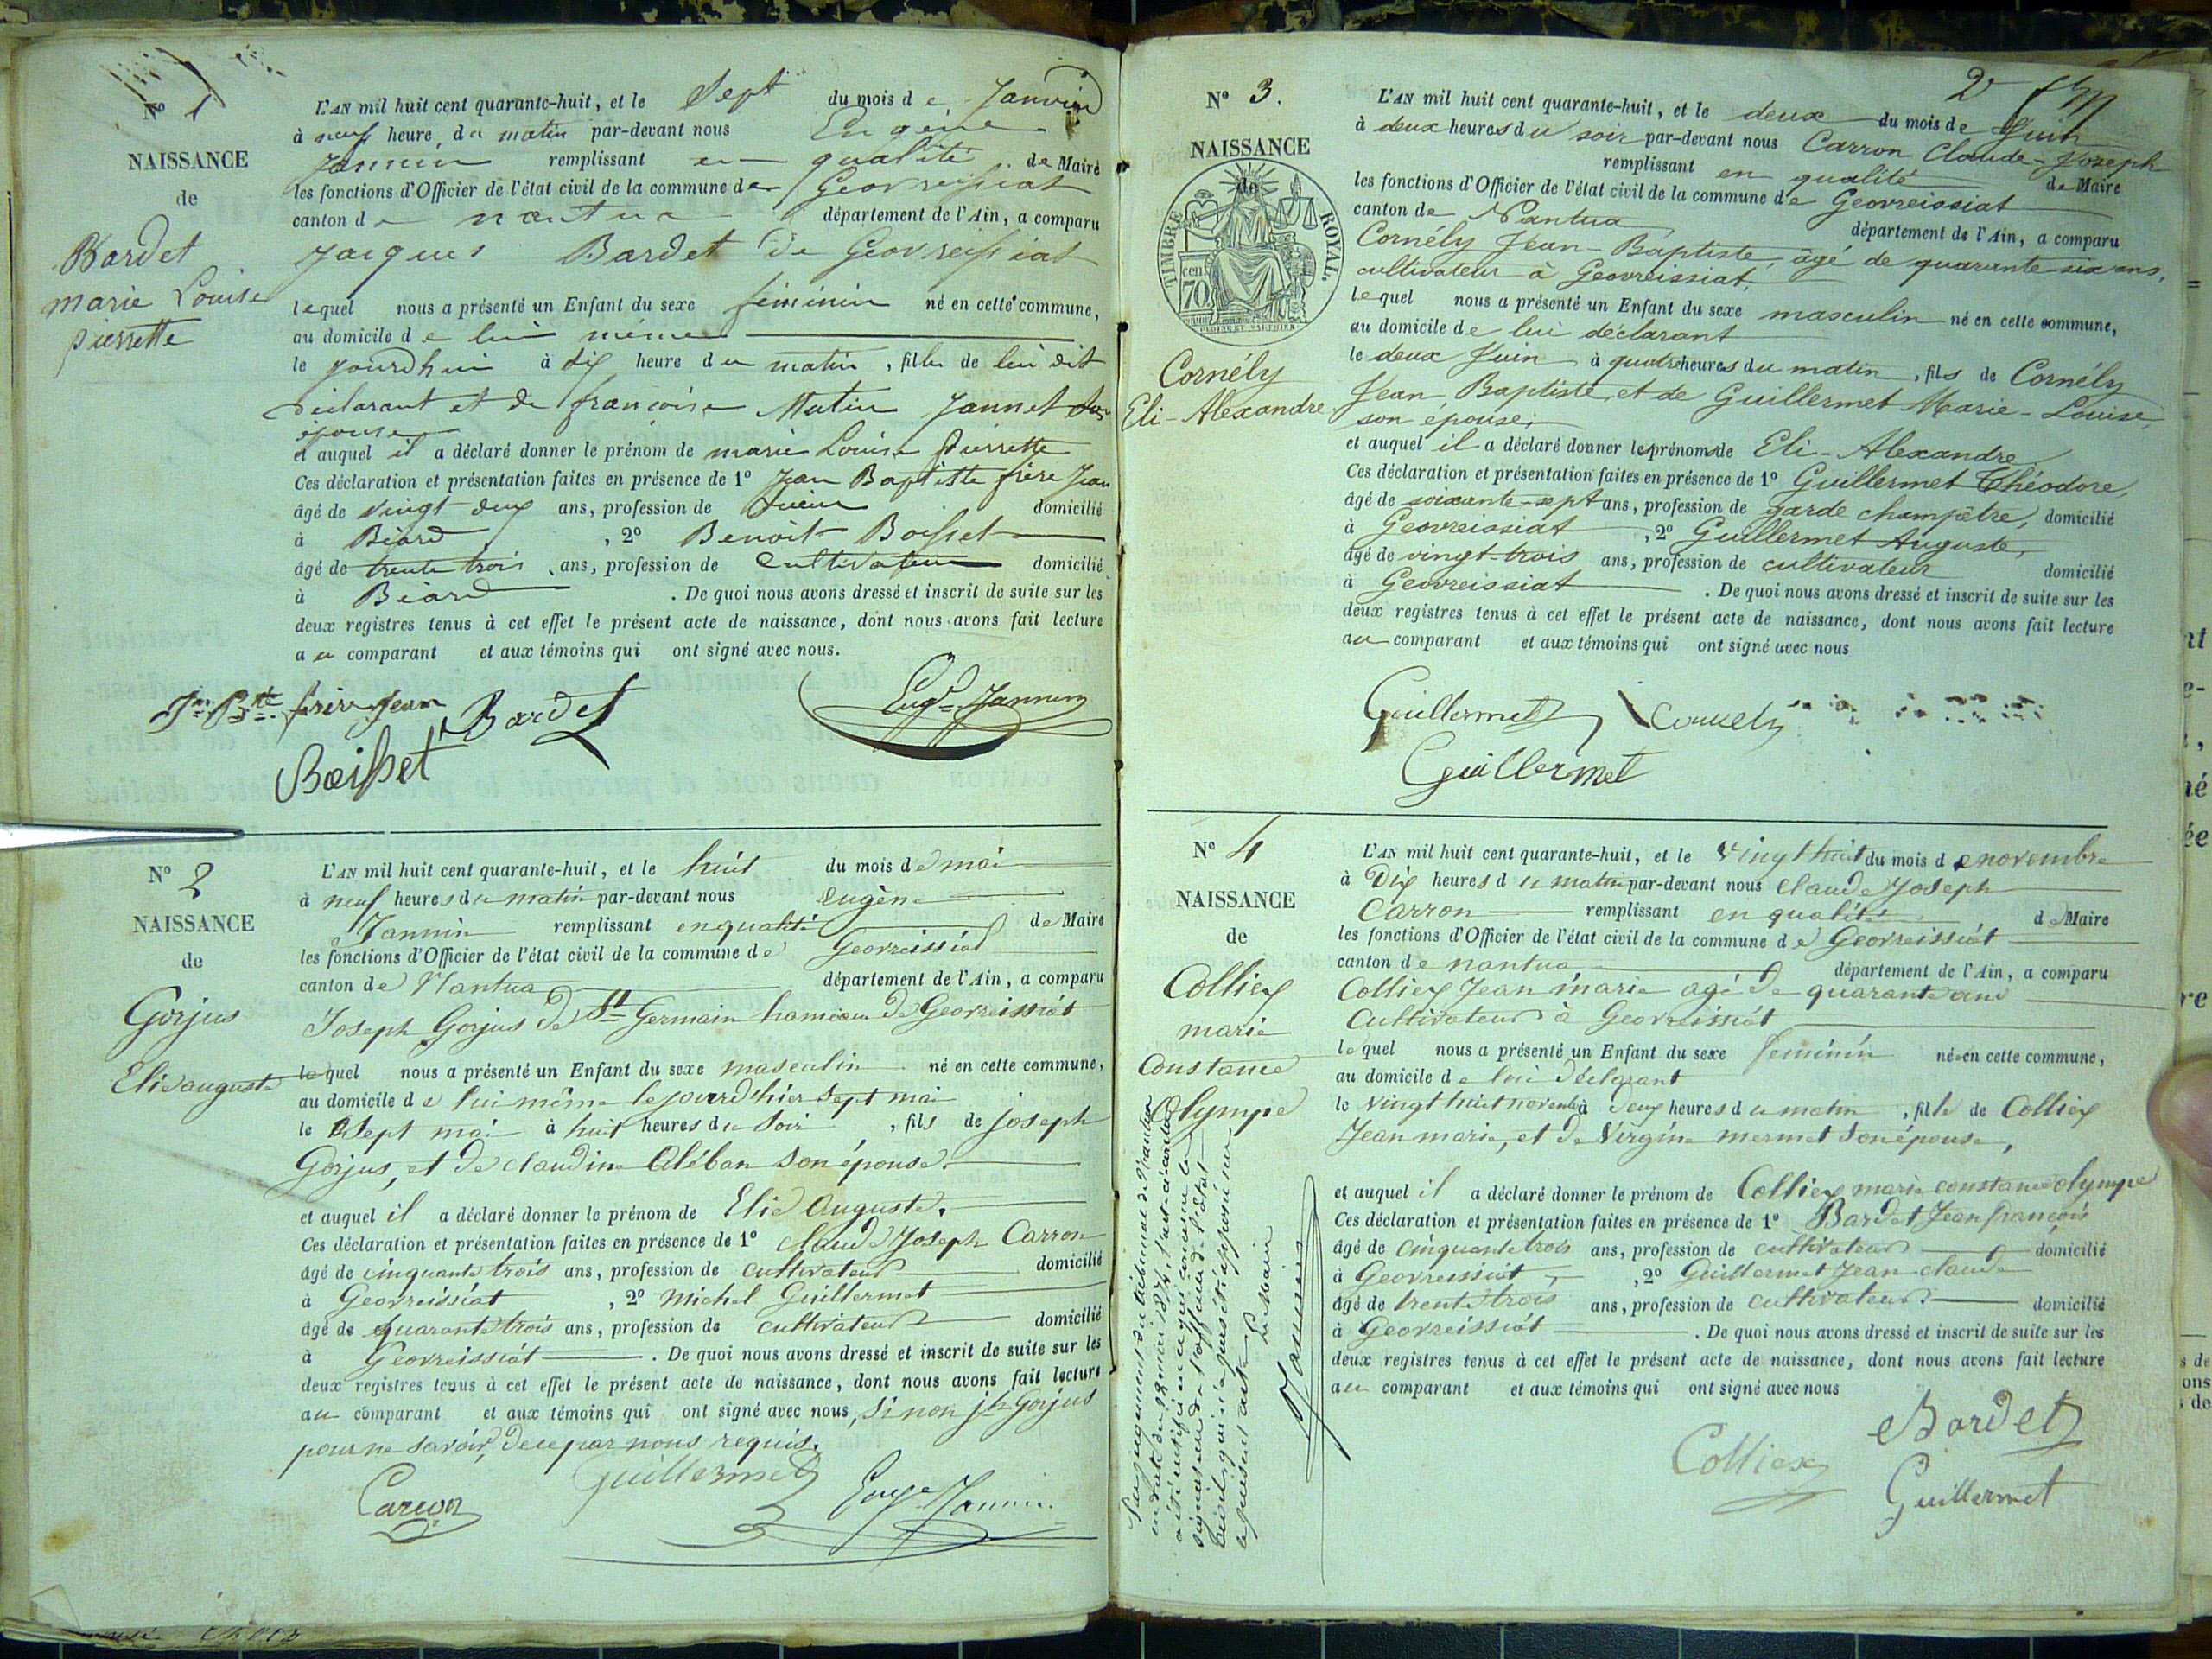 N° 1
NAISSANCE
de
Bardet
marie Louise
pierrette
L'AN mil huit cent quarante-huit, et le Sept du mois de Janvier
à neuf heure du matin par-devant nous Eugène
Jannin remplissant en qualité de Maire
les fonctions d'Officier de l'état civil de la commune de Geovreissiat
canton de nantua département de l'Ain, a comparu
Jacques Bardet de Geovreissiat
lequel nous a présenté un Enfant du sexe féminin né en cette commune,
au domicile de lui même
le jourdhui à dix heure du matin, fille de lui dit
déclarant et de francoise Matin Jannet son
épouse
et auquel il a déclaré donner le prénom de marie Louise Pierrette
Ces déclaration et présentation faites en présence de 1° Jean Baptiste frère Jean
âgé de vingt deux ans, profession de domicilié
à Béard, 2° Benoit Boisset
âgé de trente trois ans, profession de Cultivateur domicilié
à Béard. De quoi nous avons dressé et inscrit de suite sur les
deux registres tenus à cet effet le présent acte de naissance, dont nous avons fait lecture
au comparant et aux témoins qui ont signé avec nous.
Jn Bte frère Jean Bardet Eugne Jannin
Boisset
N° 2
NAISSANCE
de
Gorjus
Elie auguste
L'AN mil huit cent quarante-huit, et le huit du mois de mai
à neuf heures du matin par-devant nous eugène
Jannin remplissant en qualité de Maire
les fonctions d'Officier de l'état civil de la commune de Geovreissiat
canton de Nantua département de l'Ain, a comparu
Joseph Gorjus de St Germain hameau de Geovreissiat
lequel nous a présenté un Enfant du sexe masculin né en cette commune,
au domicile de lui même le jourd'hier sept mai
le Sept mai à huit heures du Soir, fils de joseph
Gorjus, et de claudine Aléban son épouse.
et auquel il a déclaré donner le prénom de Elie Auguste.
Ces déclaration et présentation faites en présence de 1° claude Joseph Carron
âgé de cinquante trois ans, profession de cultivateur domicilié
à Geovreissiat, 2° Michel Guillermet
âgé de quarante trois ans, profession de cultivateur domicilié
à Geovreissiat. De quoi nous avons dressé et inscrit de suite sur les
deux registres tenus à cet effet le présent acte de naissance, dont nous avons fait lecture
au comparant et aux témoins qui ont signé avec nous, Sinon jh Gorjus
pour ne savoir, de ce par nous requis.
Carron Guillermet Euge Jannin
2
N° 3.
NAISSANCE
de
TIMBRE ROYAL.
cen 70
Cornély
Eli-Alexandre
L'AN mil huit cent quarante-huit, et le deux du mois de Juin
à deux heures du soir par-devant nous Carron Claude-Joseph
remplissant en qualité de Maire
les fonctions d'Officier de l'état civil de la commune de Geovreissiat
canton de Nantua département de l'Ain, a comparu
Cornély Jean-Baptiste, âgé de quarante-six ans,
cultivateur à Geovreissiat,
lequel nous a présenté un Enfant du sexe masculin né en cette commune,
au domicile de lui déclarant
le deux Juin à quatre heures du matin, fils de Cornély
Jean-Baptiste, et de Guillermet Marie-Louise,
son épouse;
et auquel il a déclaré donner les prénoms de Eli-Alexandre.
Ces déclaration et présentation faites en présence de 1° Guillermet Théodore,
âgé de soixante-sept ans, profession de garde champêtre, domicilié
à Geovreissiat, 2° Guillermet Auguste,
âgé de vingt-trois ans, profession de cultivateur domicilié
à Geovreissiat. De quoi nous avons dressé et inscrit de suite sur les
deux registres tenus à cet effet le présent acte de naissance, dont nous avons fait lecture
au comparant et aux témoins qui ont signé avec nous
Guillermet Cornely
Guillermet
N° 4
NAISSANCE
de
Colliex
marie
Constance
Olympe
L'AN mil huit cent quarante-huit, et le vingt huit du mois de novembre
à Dix heures du matin par-devant nous claude Joseph
Carron remplissant en qualité de Maire
les fonctions d'Officier de l'état civil de la commune de Geovreissiat
canton de nantua département de l'Ain, a comparu
Colliex Jean marie agé de quarante ans
Cultivateur à Geovreissiat
lequel nous a présenté un Enfant du sexe féminin né en cette commune,
au domicile de lui déclarant
le vingt huit novembre à deux heures du matin, fille de Colliex
Jean marie, et de Virginie mermet son épouse,
et auquel il a déclaré donner le prénom de Colliex marie constance olympe
Ces déclaration et présentation faites en présence de 1° Bardet Jean françois
âgé de cinquante trois ans, profession de cultivateur domicilié
à Geovreissiat, 2° Guillermet Jean claude
âgé de trente trois ans, profession de cultivateur domicilié
à Geovreissiat. De quoi nous avons dressé et inscrit de suite sur les
deux registres tenus à cet effet le présent acte de naissance, dont nous avons fait lecture
au comparant et aux témoins qui ont signé avec nous
Bardet
Colliex
Guillermet
Par jugement du tribunal de Nantua
en date du 1874, l'acte ci-contre
a été rectifié en ce qui concerne la
signature de l'officier de l'état
civil, qui n'a pas été apposée sur
le présent acte
Le Maire
Jannin